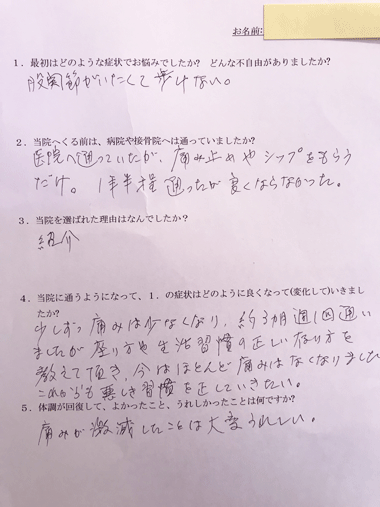 お名前:
1．最初はどのような症状でお悩みでしたか? どんな不自由がありましたか?
股関節がいたくて歩けない。
2．当院へくる前は、病院や接骨院へは通っていましたか?
医院へ通っていたが、痛み止めやシップをもらう
だけ。1年半程通ったが良くならなかった。
3．当院を選ばれた理由はなんでしたか?
紹介
4．当院に通うようになって、1．の症状はどのように良くなって(変化して)いきまし
たか?
少しずつ痛みは少なくなり、約3カ月週1回通い
ましたが座り方や生活習慣の正しい在り方を
教えて頂き、今はほとんど痛みはなくなりました
これからも悪しき習慣を正していきたい。
5．体調が回復して、よかったこと、うれしかったことは何ですか?
痛みが激減したことは大変うれしい。